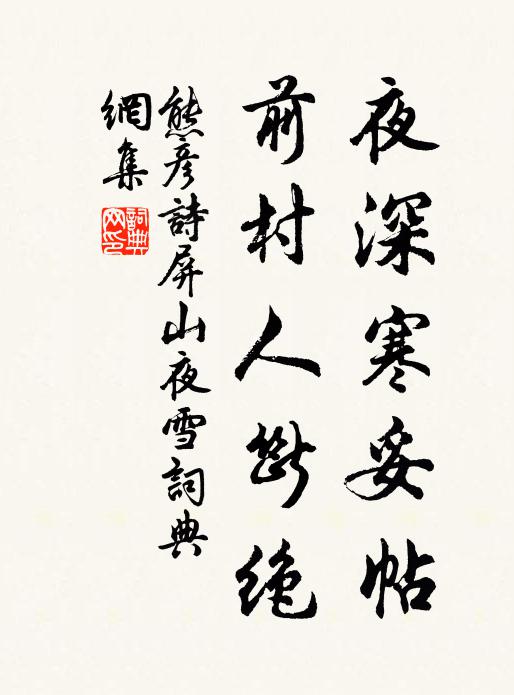 夜深寒妥帖
前村人斷絶
熊彥詩屏山夜雪詞典
網集
詞典网印